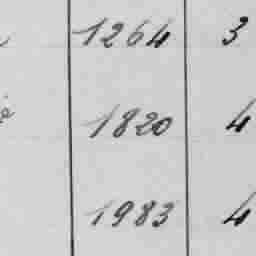 1264 3
1820 4
1983 4